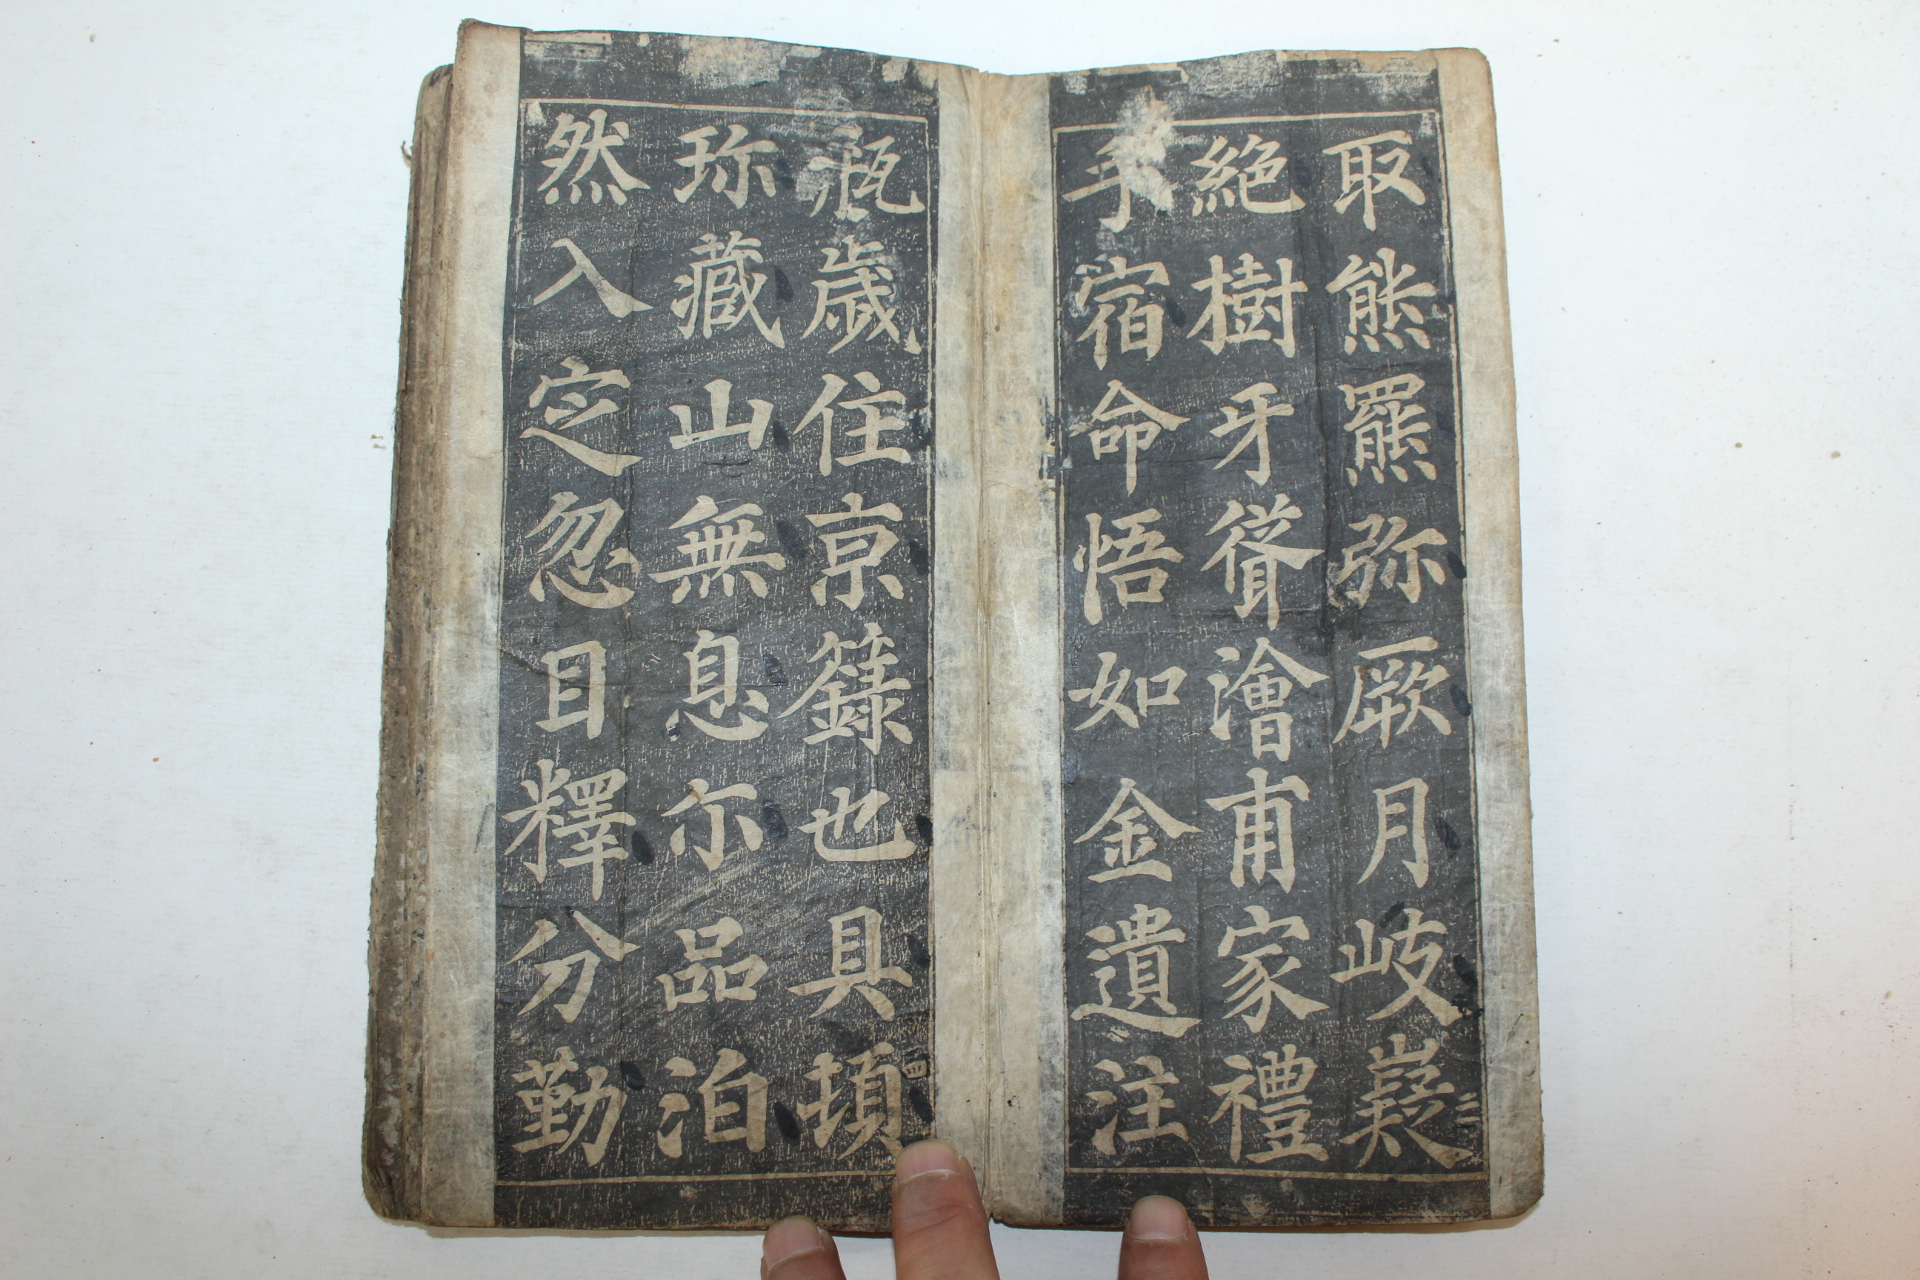 取熊羆弥厥月歧嶷
三
絶樹牙聳濬甫家禮
手宿命悟如金遺注
瓶歲住京籙也具頓
四
珎藏山無息尓品泊
然入定忽目釋分勤